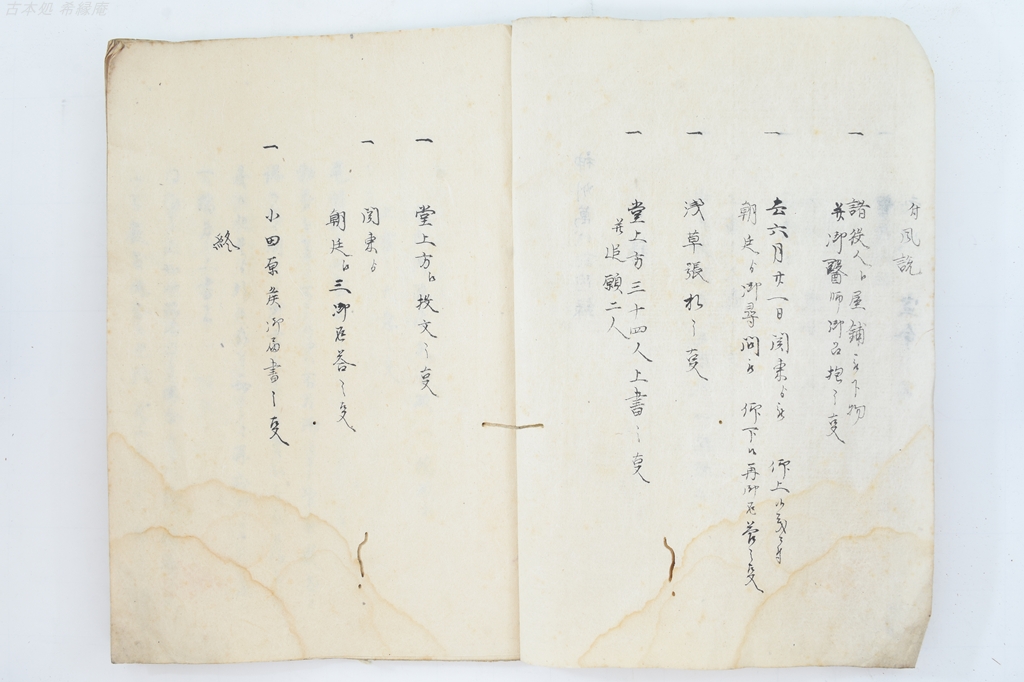 古本処 希縁庵
付風説
一 諸役人江屋鋪被下物
并御醫師御召抱之事
一 去六月廿一日関東ゟ被 仰上候義ニ付
朝廷ゟ御尋問被 仰下候再御返答之事
一 浅草張札之事
一 堂上方三十四人上書之事
并追願二人
一 堂上方江投文之事
一 関東ゟ
朝廷江三御返答之事
一 小田原矦御届書之事
終